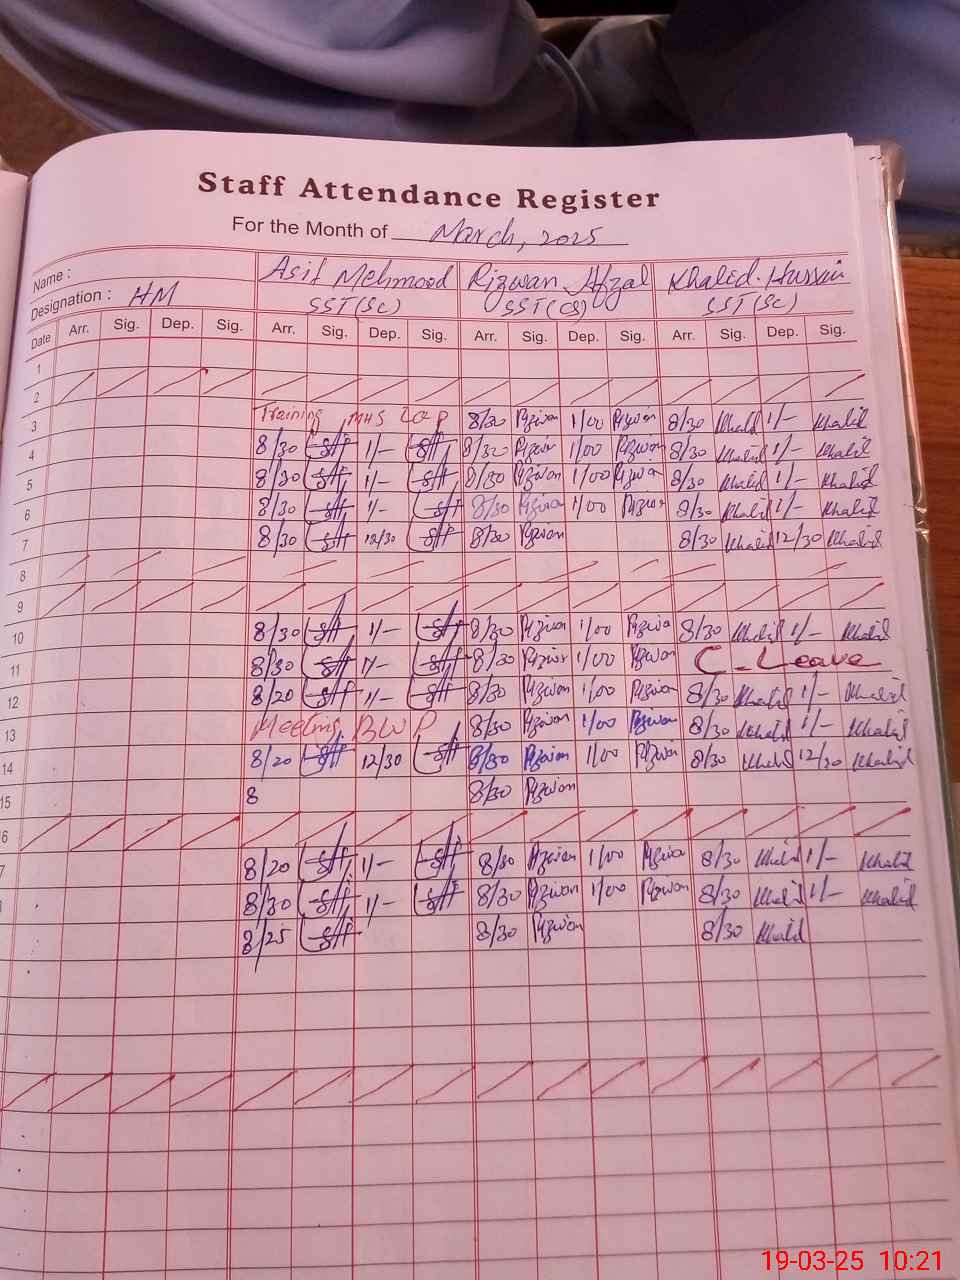 Staff Attendance Register
For the Month of March, 2025
Name : Asif Mehmood Rizwan Afzal Khalid Hussain
Designation : HM SST(Sc) SST(CS) SST(Sc)
Date Arr. Sig. Dep. Sig. Arr. Sig. Dep. Sig. Arr. Sig. Dep. Sig. Arr. Sig. Dep. Sig.
1
2
3 Training MHS 8/30 Rizwan 1/00 Rizwan 8/30 Khalid 1/- Khalid
4 8/30 1/- 8/30 Rizwan 1/00 Rizwan 8/30 Khalid 1/- Khalid
5 8/30 1/- 8/30 Rizwan 1/00 Rizwan 8/30 Khalid 1/- Khalid
6 8/30 1/- 8/30 Rizwan 1/00 Rizwan 8/30 Khalid 1/- Khalid
7 8/30 12/30 8/30 Rizwan 8/30 Khalid 12/30 Khalid
8
9
10 8/30 1/- 8/30 Rizwan 1/00 Rizwan 8/30 Khalid 1/- Khalid
11 8/30 1/- 8/30 Rizwan 1/00 Rizwan C-Leave
12 8/20 1/- 8/30 Rizwan 1/00 Rizwan 8/30 Khalid 1/- Khalid
13 Meeting BWP 8/30 Rizwan 1/00 Rizwan 8/30 Khalid 1/- Khalid
14 8/20 12/30 8/30 Rizwan 1/00 Rizwan 8/30 Khalid 12/30 Khalid
15 8 8/30 Rizwan
6
7 8/20 1/- 8/30 Rizwan 1/00 Rizwan 8/30 Khalid 1/- Khalid
8/30 1/- 8/30 Rizwan 1/00 Rizwan 8/30 Khalid 1/- Khalid
8/25 8/30 Rizwan 8/30 Khalid
19-03-25 10:21